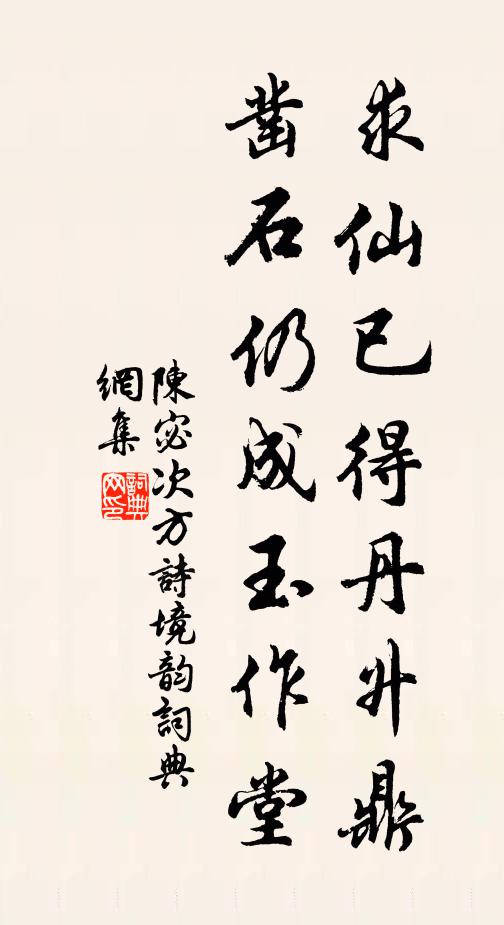 求仙已得丹升鼎
凿石仍成玉作堂
陳宓次方詩境韵詞典
網集
詞典网印